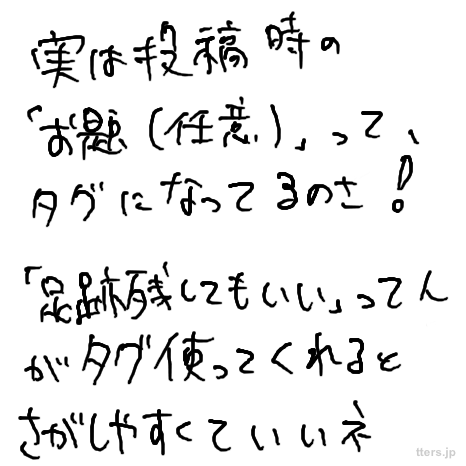 実は投稿時の
「お題(任意)」って、
タグになってるのさ!
「足跡残してもいい」ってん
がタグ使ってくれると
さがしやすくていいネ
tters.jp